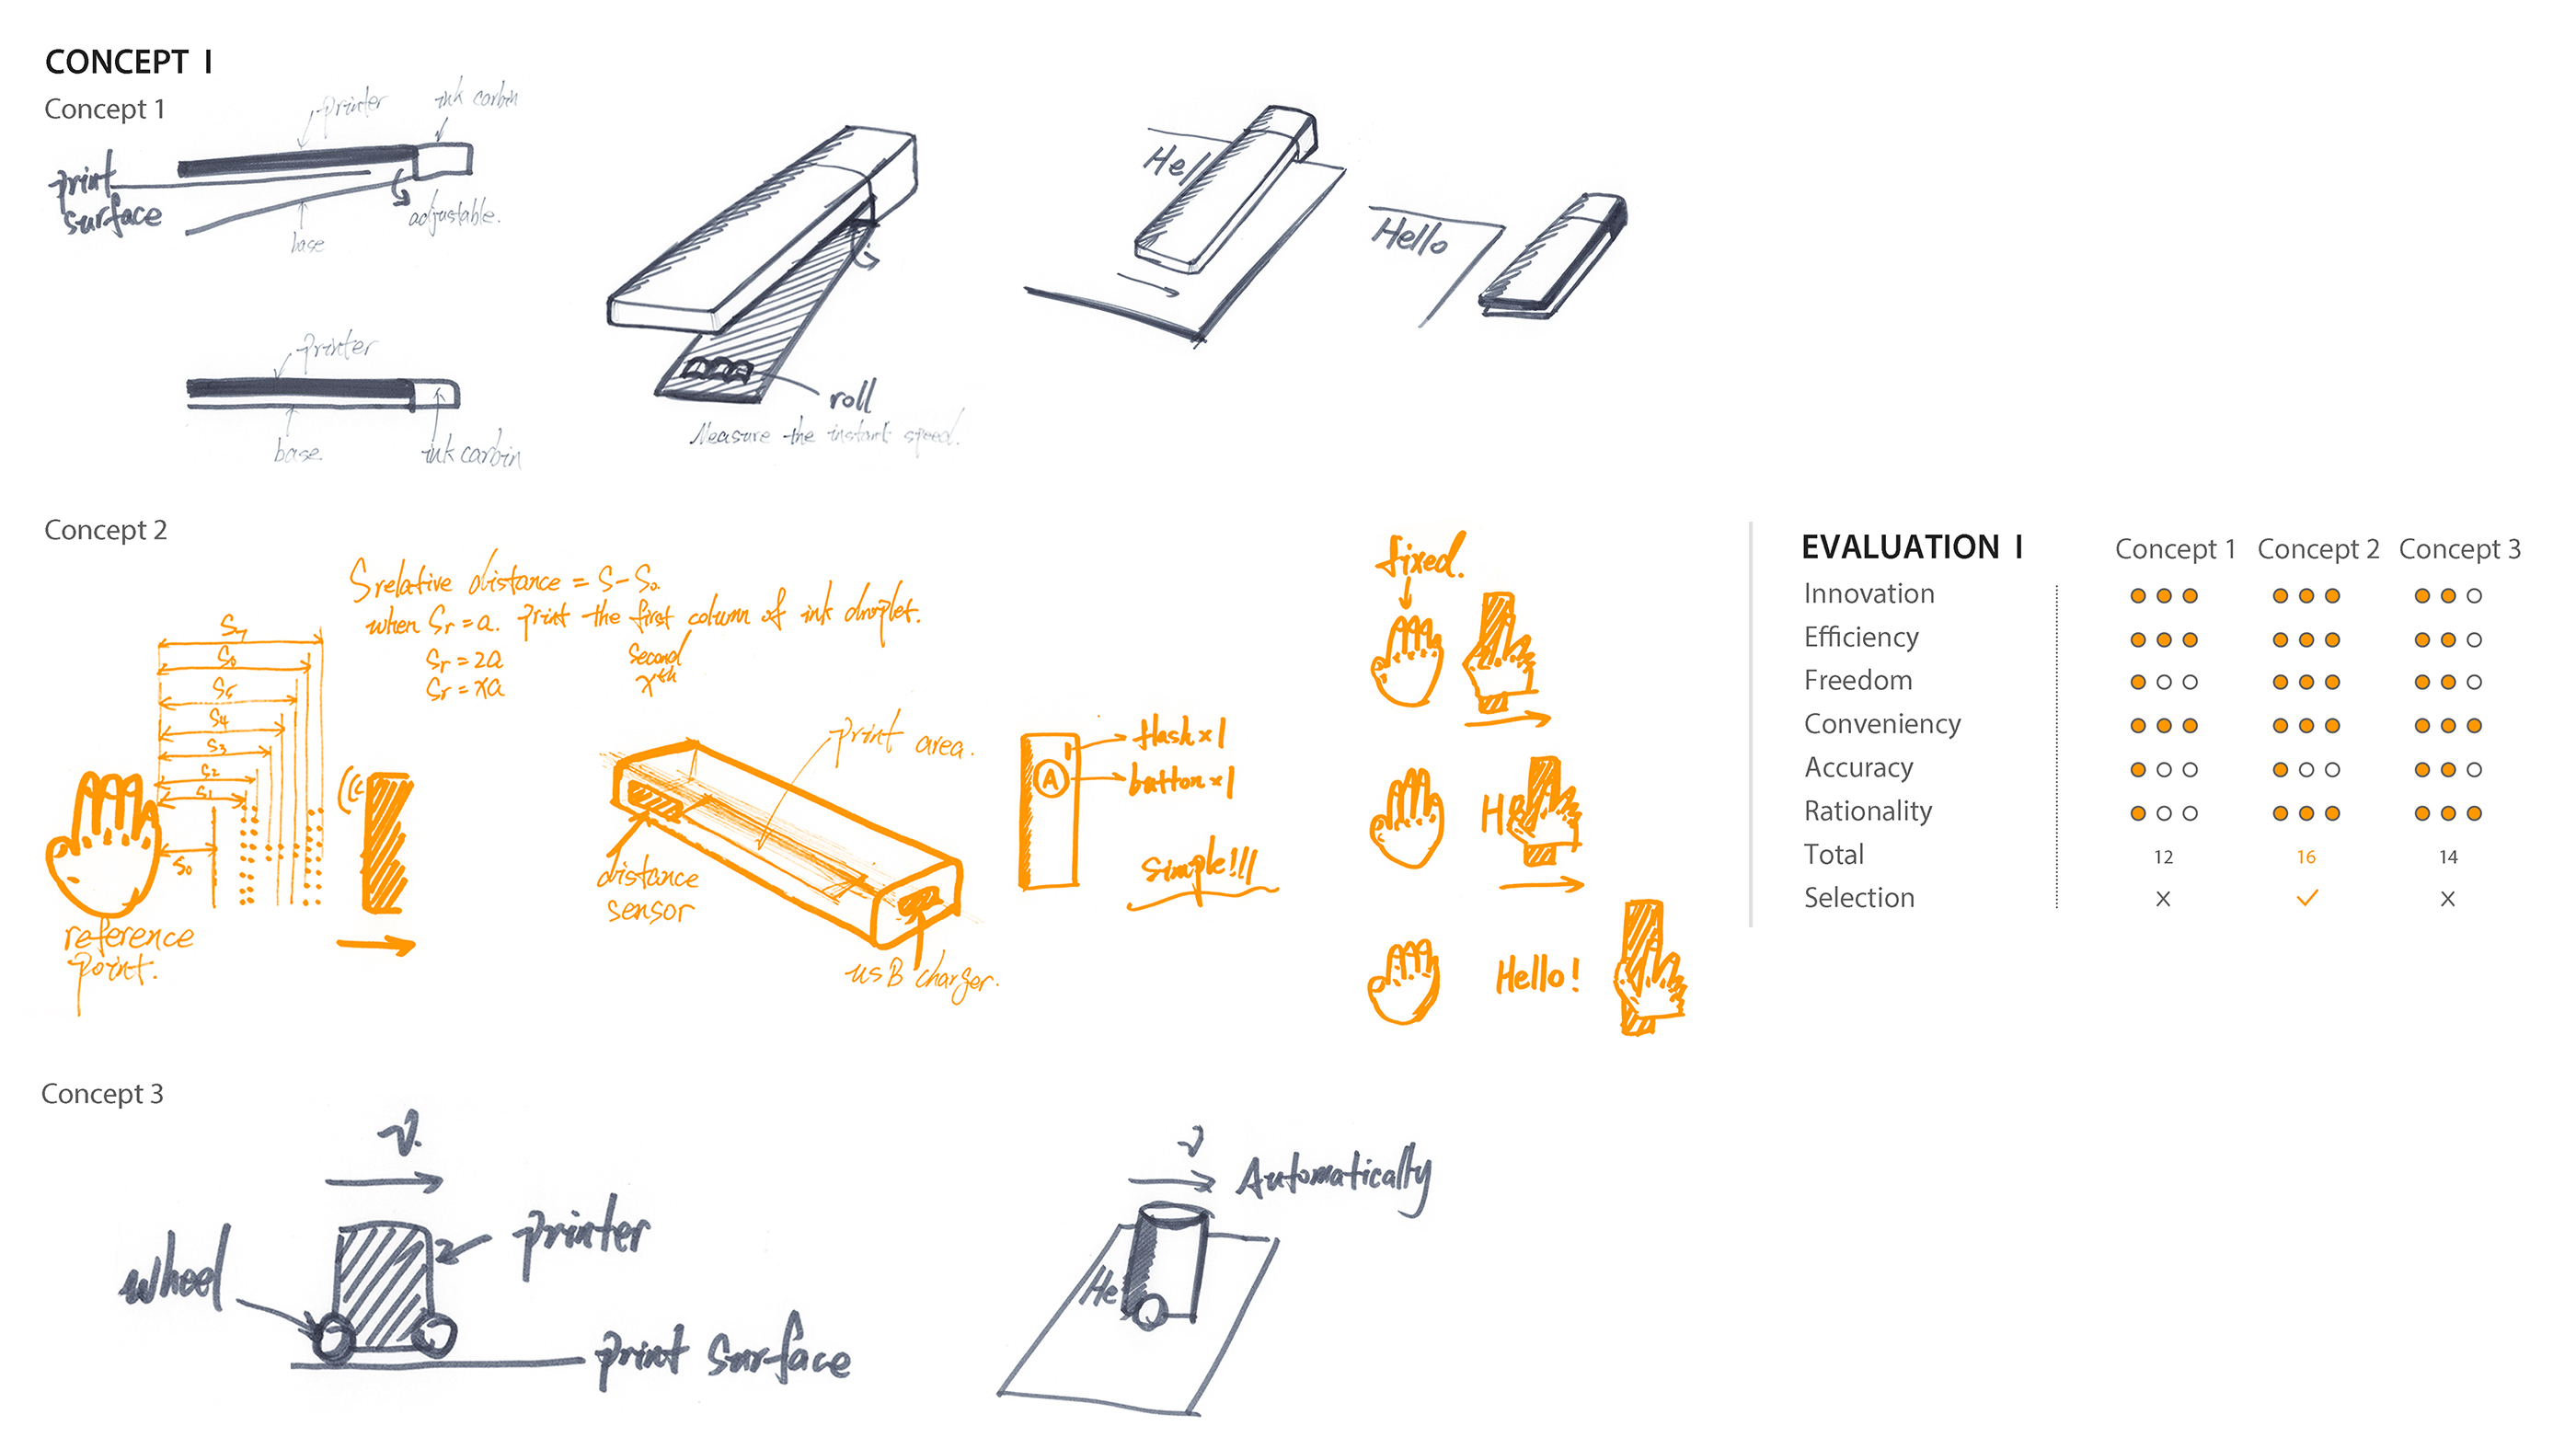 CONCEPT I
Concept 1
printer
ink carbin
print
surface
adjustable.
base
printer
base
ink carbin
roll
Measure the instant speed.
Hel
Hello
Concept 2
Srelative distance = S-S₀.
when Sr = a. print the first column of ink droplet.
Sr = 2a second
Sr = xa xth
S7
S6
S5
S4
S3
S2
S1
S0
reference
point.
print area.
distance
sensor
USB charger.
flash×1
A
button×1
Simple!!!
fixed.
He
Hello!
EVALUATION I Concept 1 Concept 2 Concept 3
Innovation
Efficiency
Freedom
Conveniency
Accuracy
Rationality
Total 12 16 14
Selection x ✓ x
Concept 3
v.
printer
wheel
print surface
v
Automatically
He